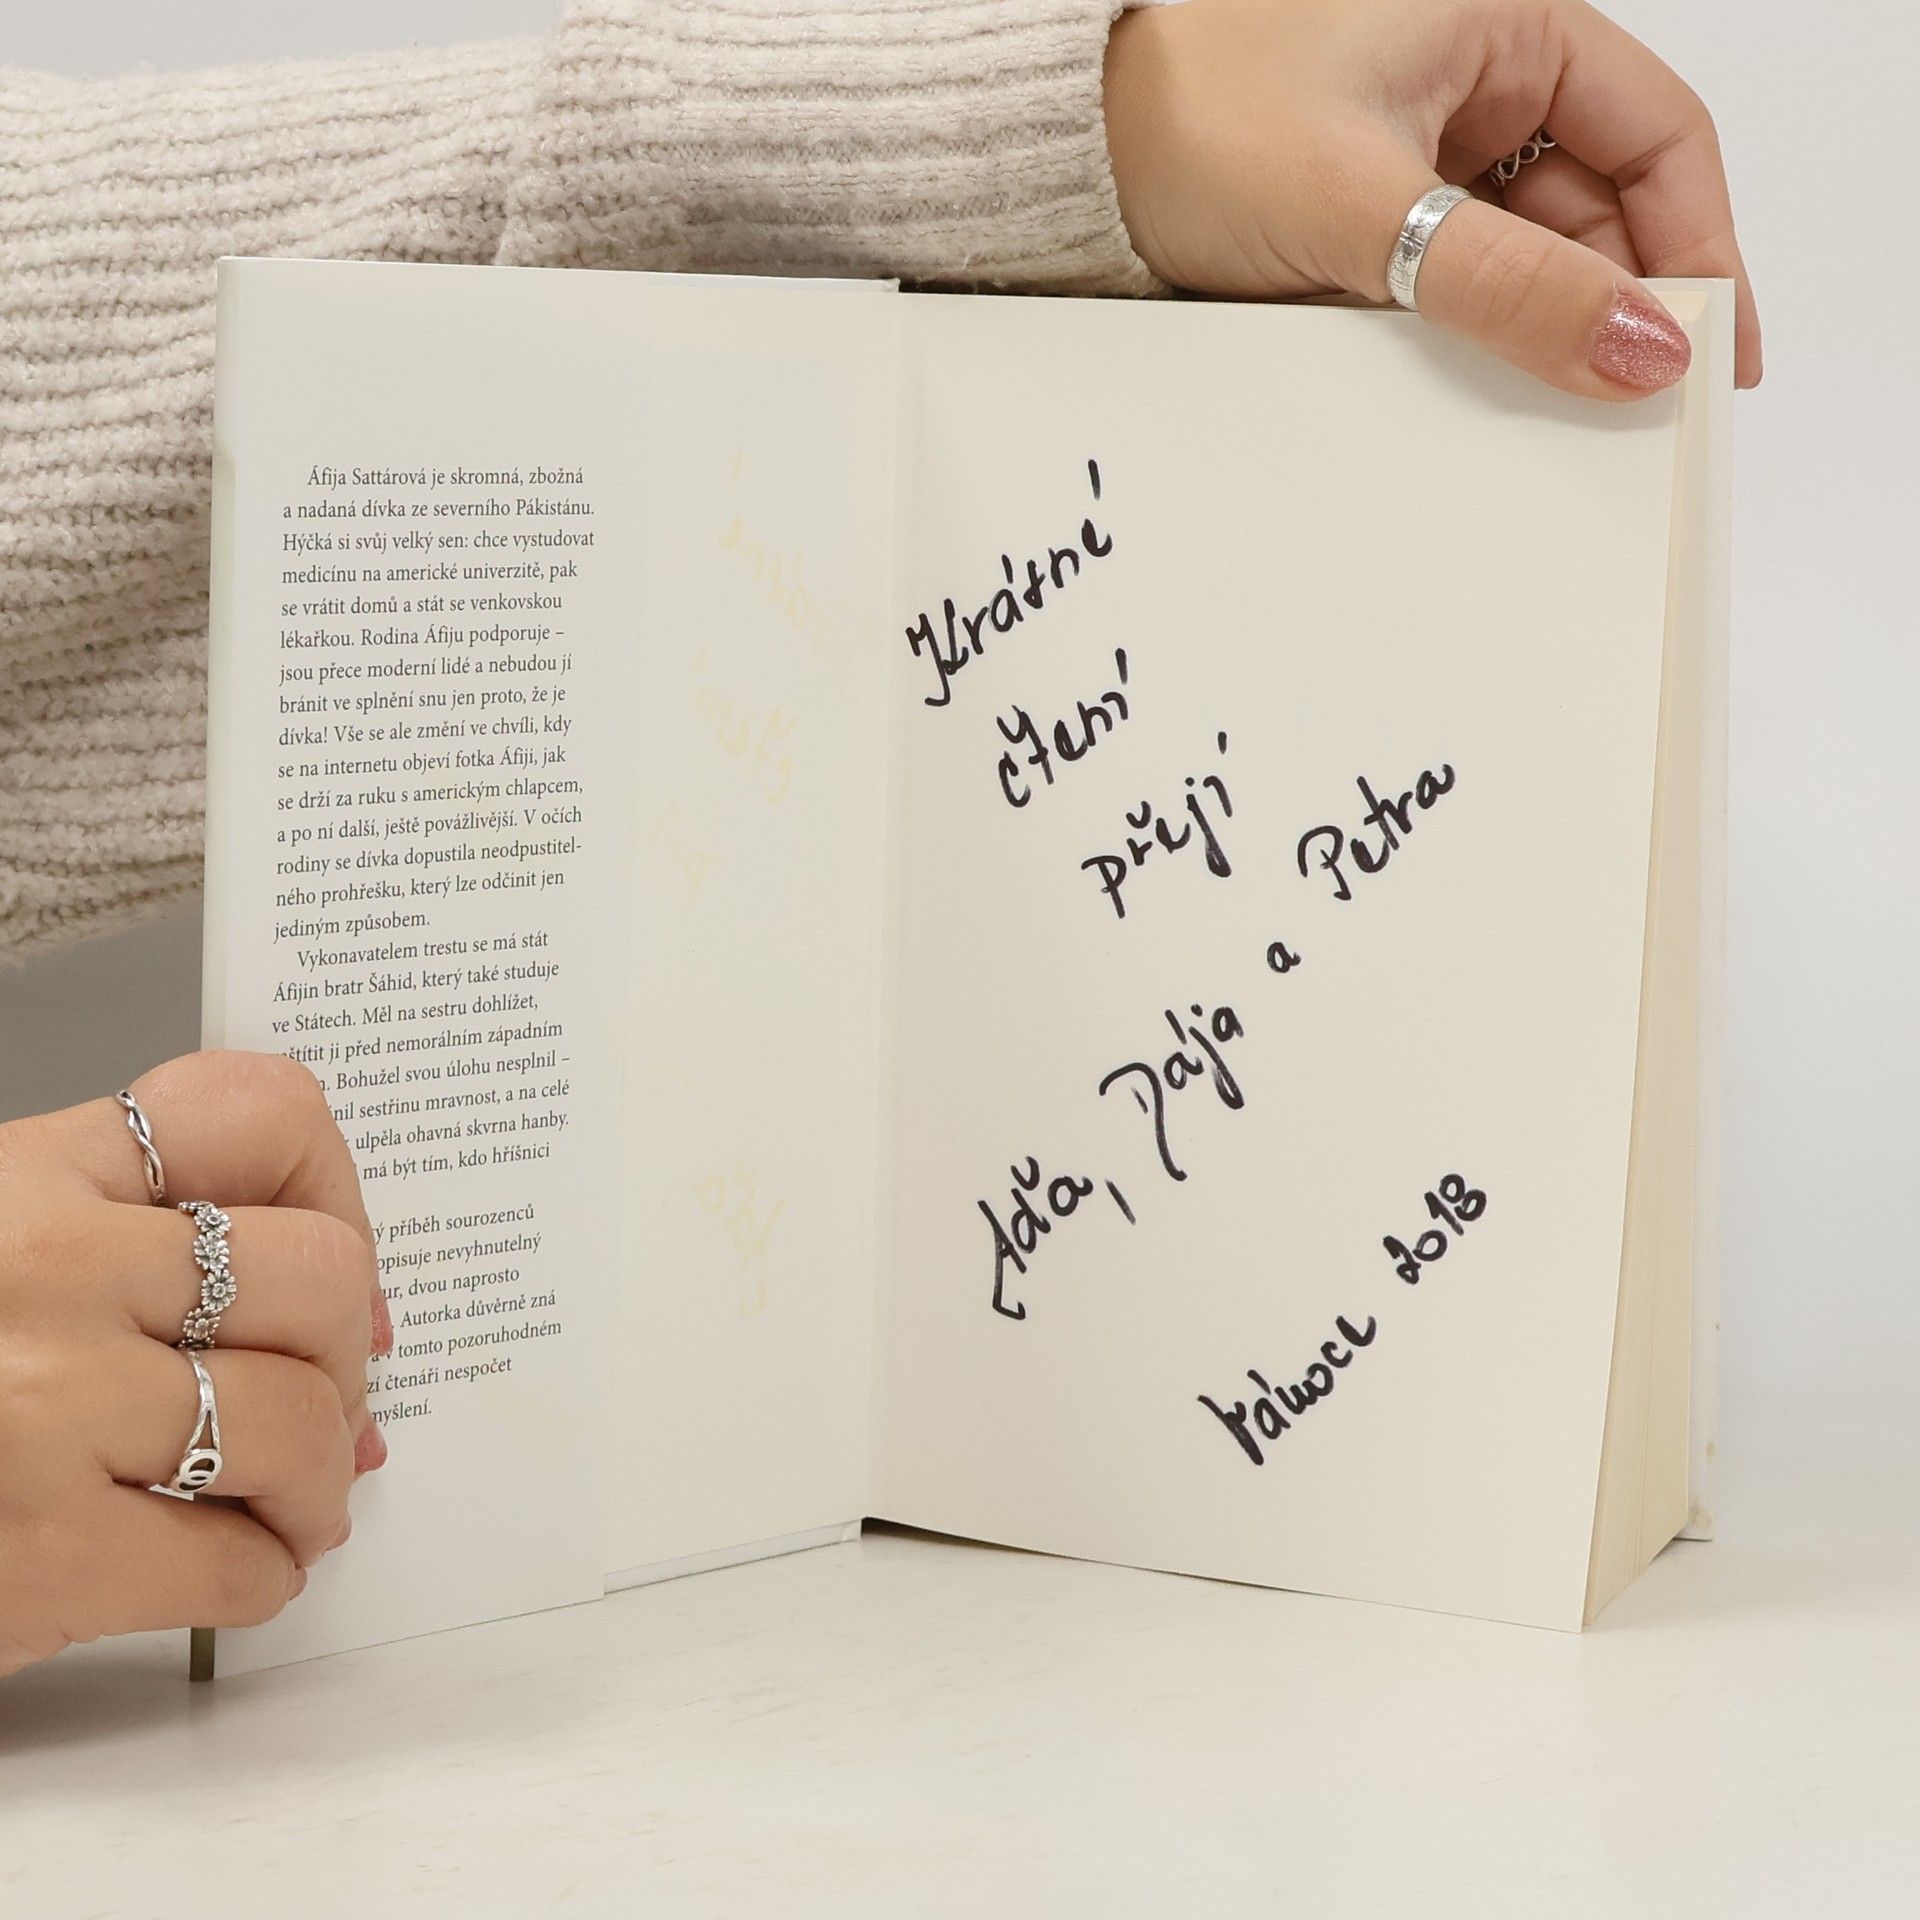 Áfija Sattárová je skromná, zbožná
a nadaná dívka ze severního Pákistánu.
Hýčká si svůj velký sen: chce vystudovat
medicínu na americké univerzitě, pak
se vrátit domů a stát se venkovskou
lékařkou. Rodina Áfiju podporuje –
jsou přece moderní lidé a nebudou jí
bránit ve splnění snu jen proto, že je
dívka! Vše se ale změní ve chvíli, kdy
se na internetu objeví fotka Áfiji, jak
se drží za ruku s americkým chlapcem,
a po ní další, ještě povážlivější. V očích
rodiny se dívka dopustila neodpustitel-
ného prohřešku, který lze odčinit jen
jediným způsobem.
Vykonavatelem trestu se má stát
Áfijin bratr Šáhid, který také studuje
ve Státech. Měl na sestru dohlížet,
štítit ji před nemorálním západním
Bohužel svou úlohu nesplnil –
nil sestřinu mravnost, a na celé
ulpěla ohavná skvrna hanby.
má být tím, kdo hříšnici
ý příběh sourozenců
opisuje nevyhnutelný
ur, dvou naprosto
. Autorka důvěrně zná
a v tomto pozoruhodném
zí čtenáři nespočet
myšlení.
Krásné
čtení
přejí
Aďa, Dája a Petra
Vánoce 2018